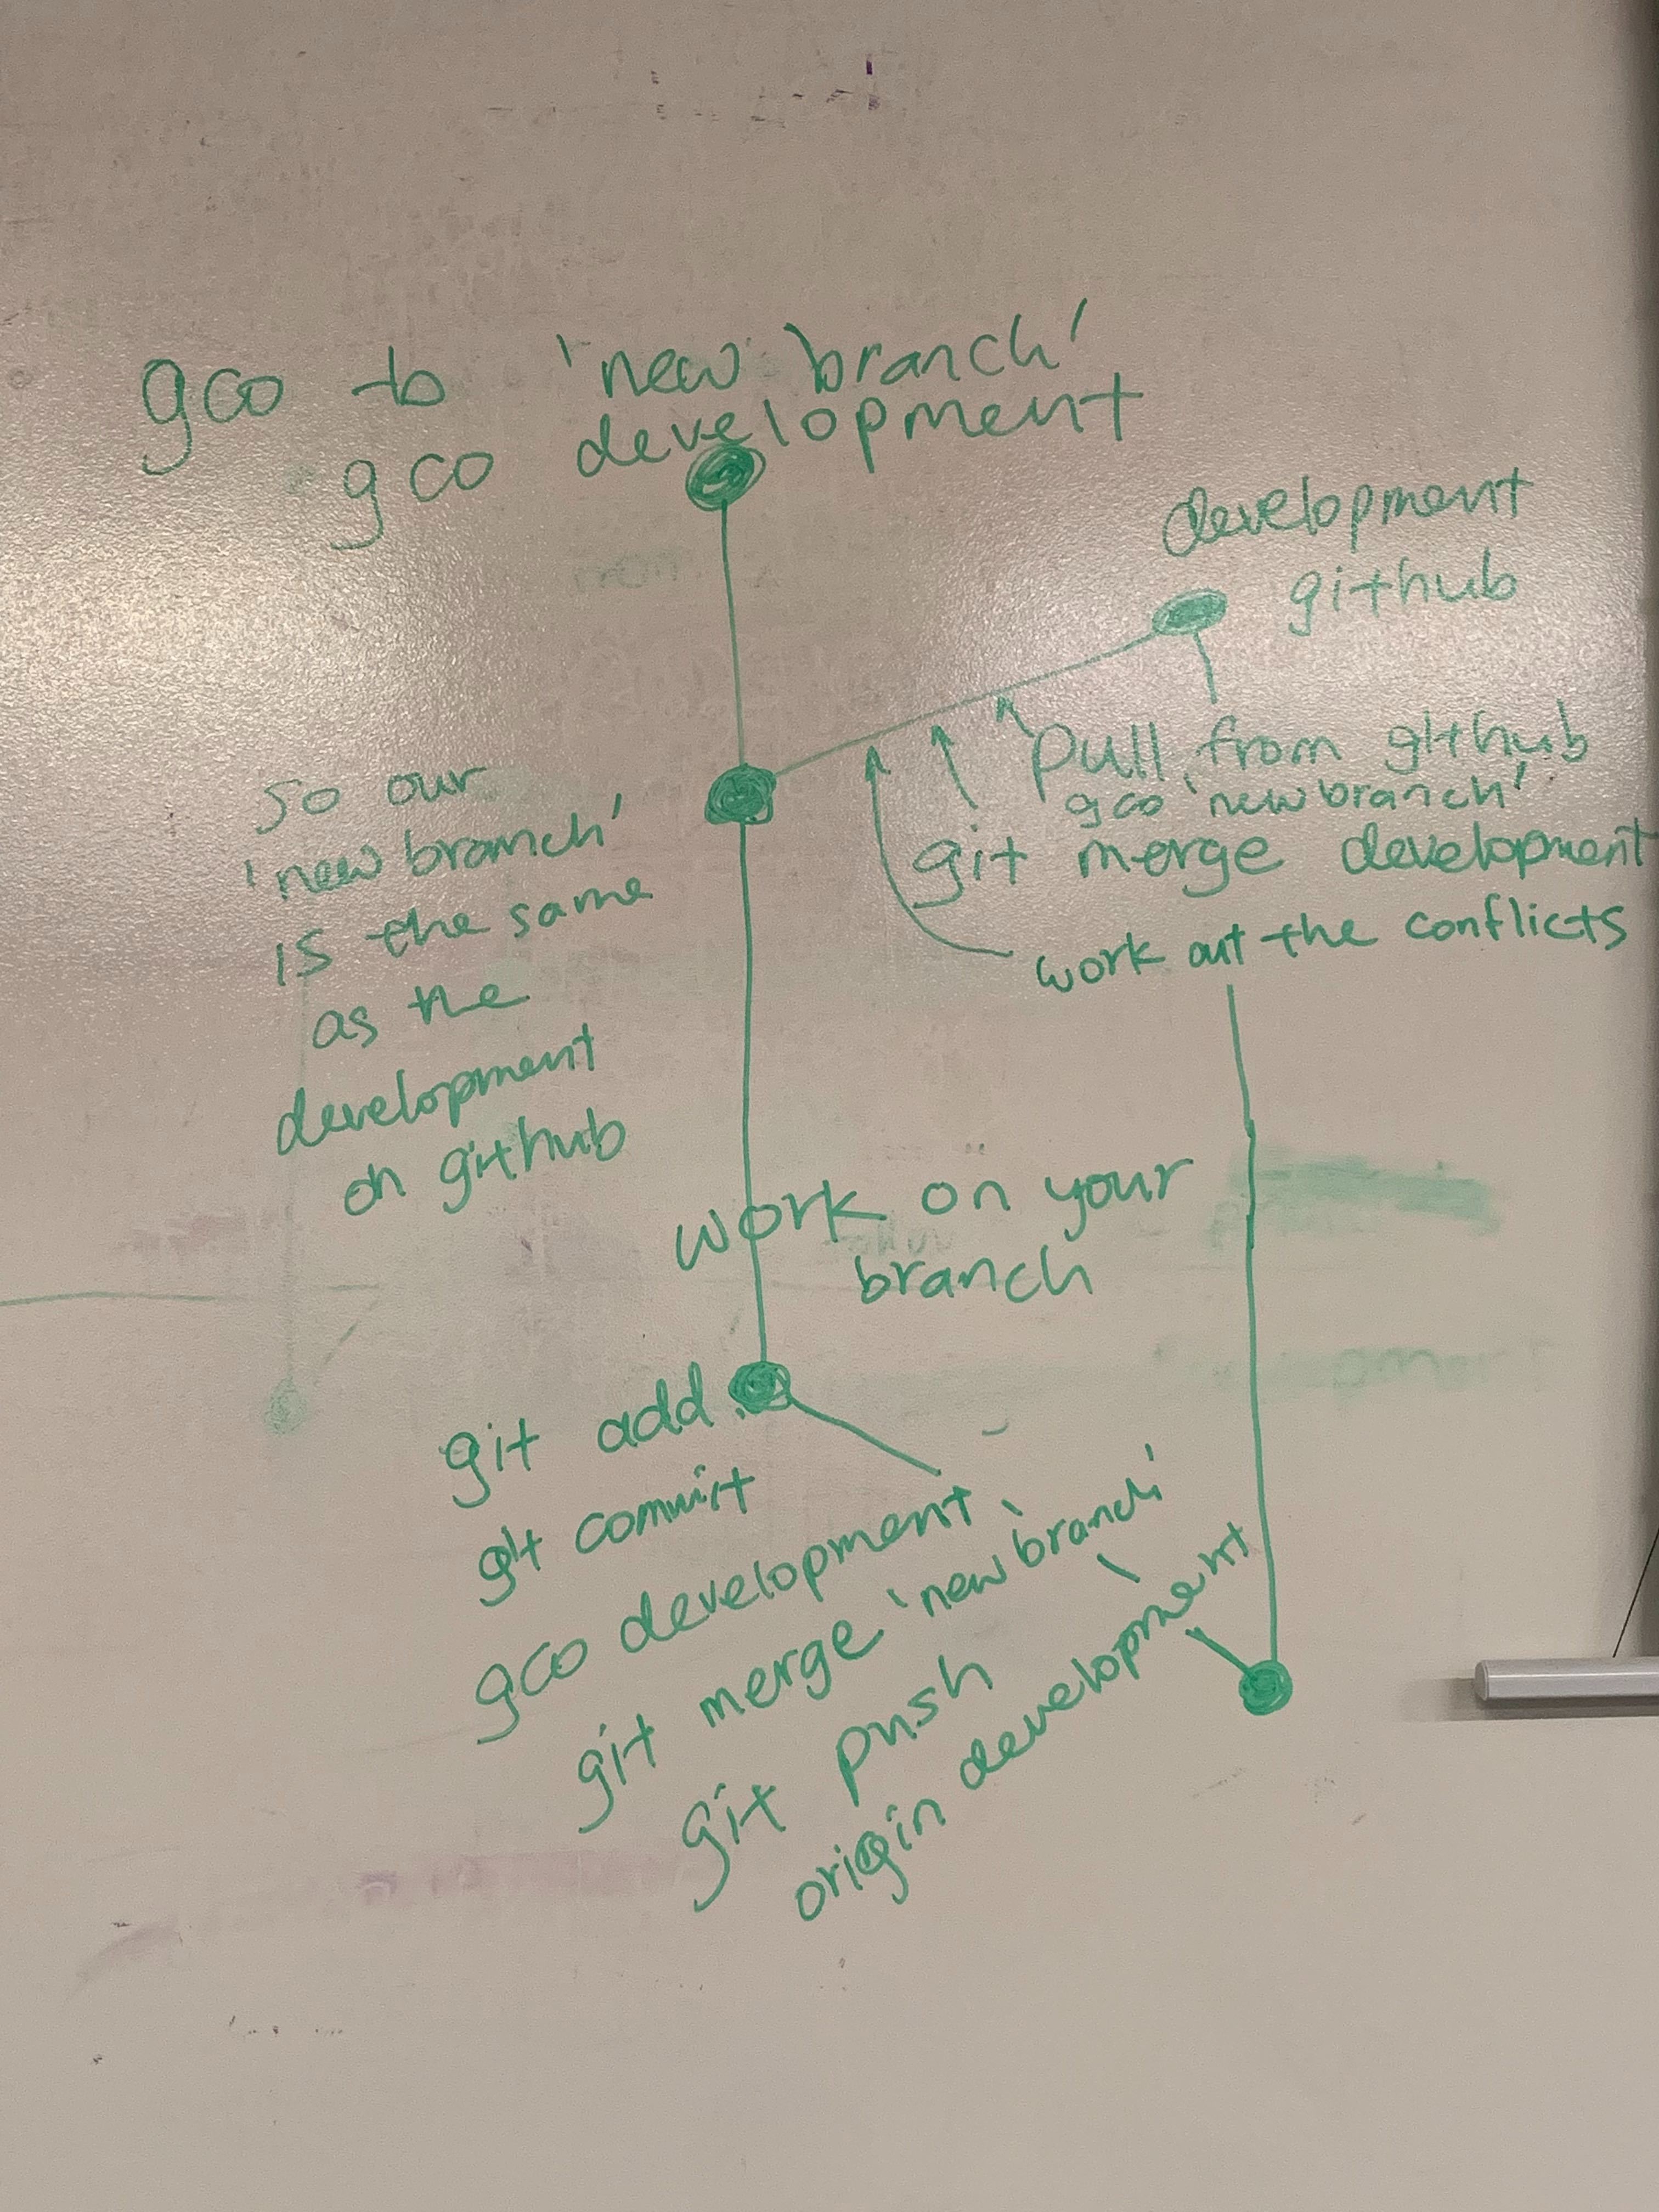 gco -b 'new branch'
gco development
development
github
Pull from github
gco 'new branch'
git merge development
work out the conflicts
so our
'new branch'
is the same
as the
development
on github
work on your
branch
git add .
git commit
gco development
git merge 'new branch'
git push
origin development